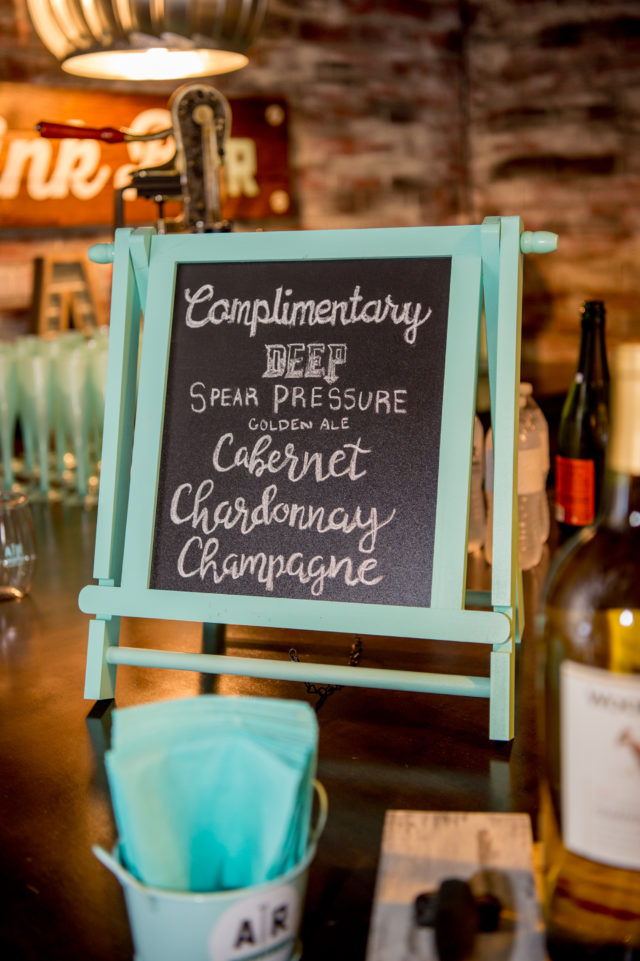 Complimentary
DEEP
SPEAR PRESSURE
GOLDEN ALE
Cabernet
Chardonnay
Champagne
A|R